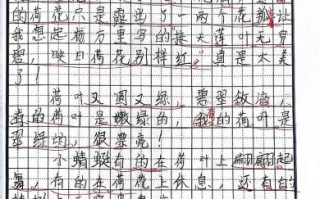 的荷花只是露出了一两个花瓣让
我想起杨万里写的接天莲叶无穷
碧，映日荷花别样红。真是太美
了！
荷叶又圆又绿，碧翠欲滴，
有的荷叶是嫩绿的，有的荷叶是
翠绿的，很漂亮！
小蜻蜓有的在荷叶上翩翩起
舞，有的在荷花上休息，还有的